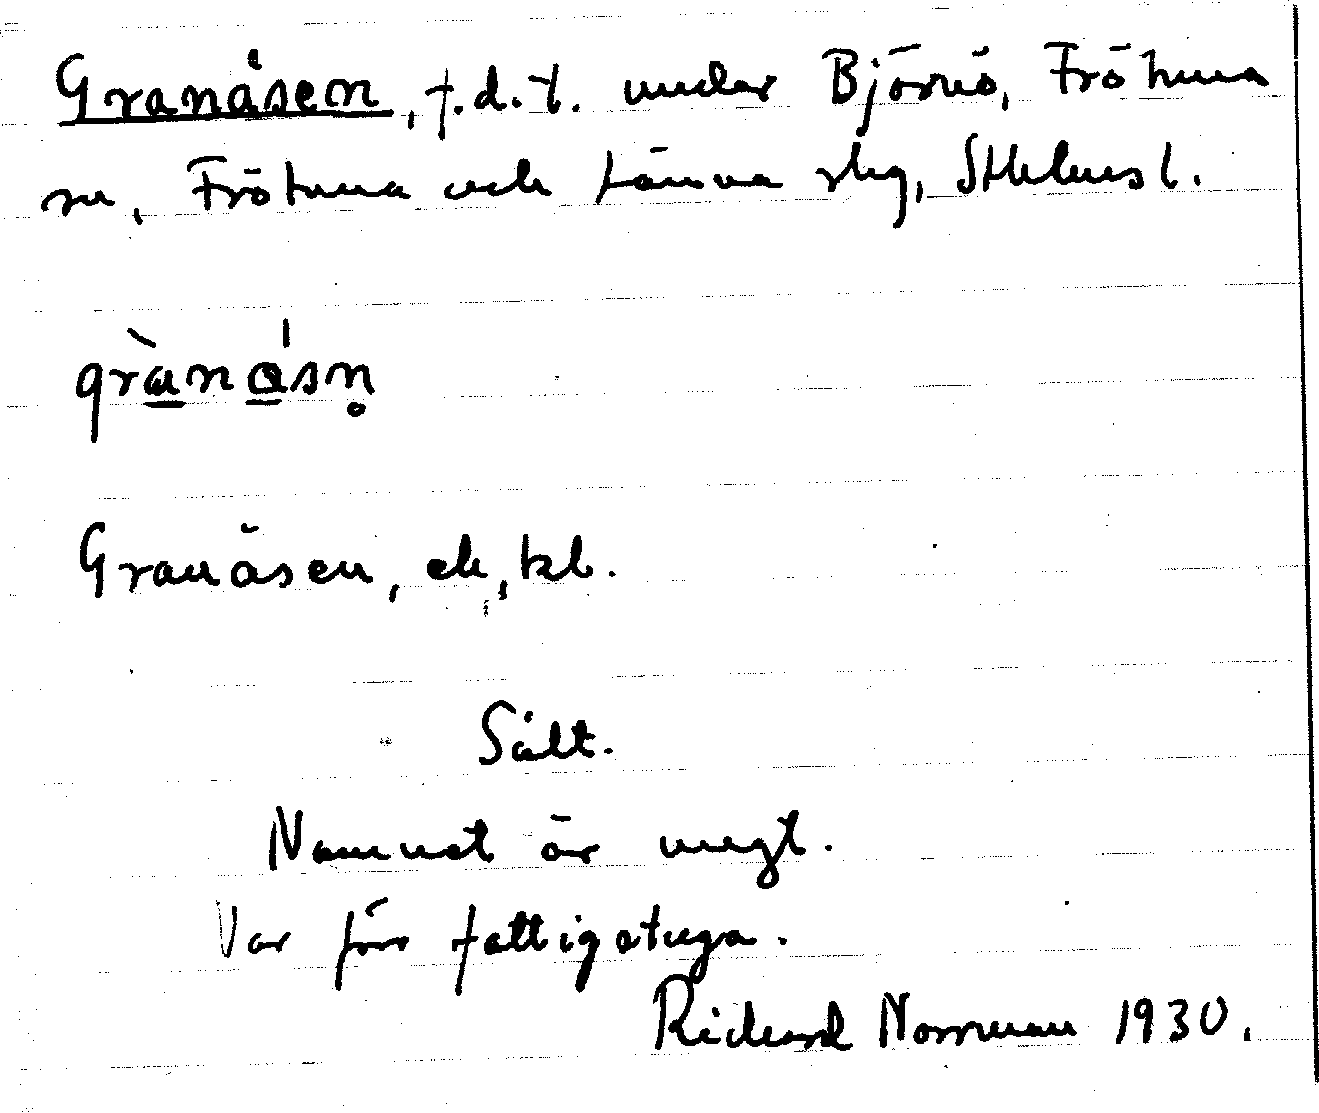 Granåsen, f.d.t. under Björnö, Frötuna
sn, Frötuna och Länna skg, Sthlms l.
grànåsn̥
Granåsen, ek, kbl.
Sålt.
Namnet är uregt.
Var förr fattigstuga.
Rickard Norrman 1930.